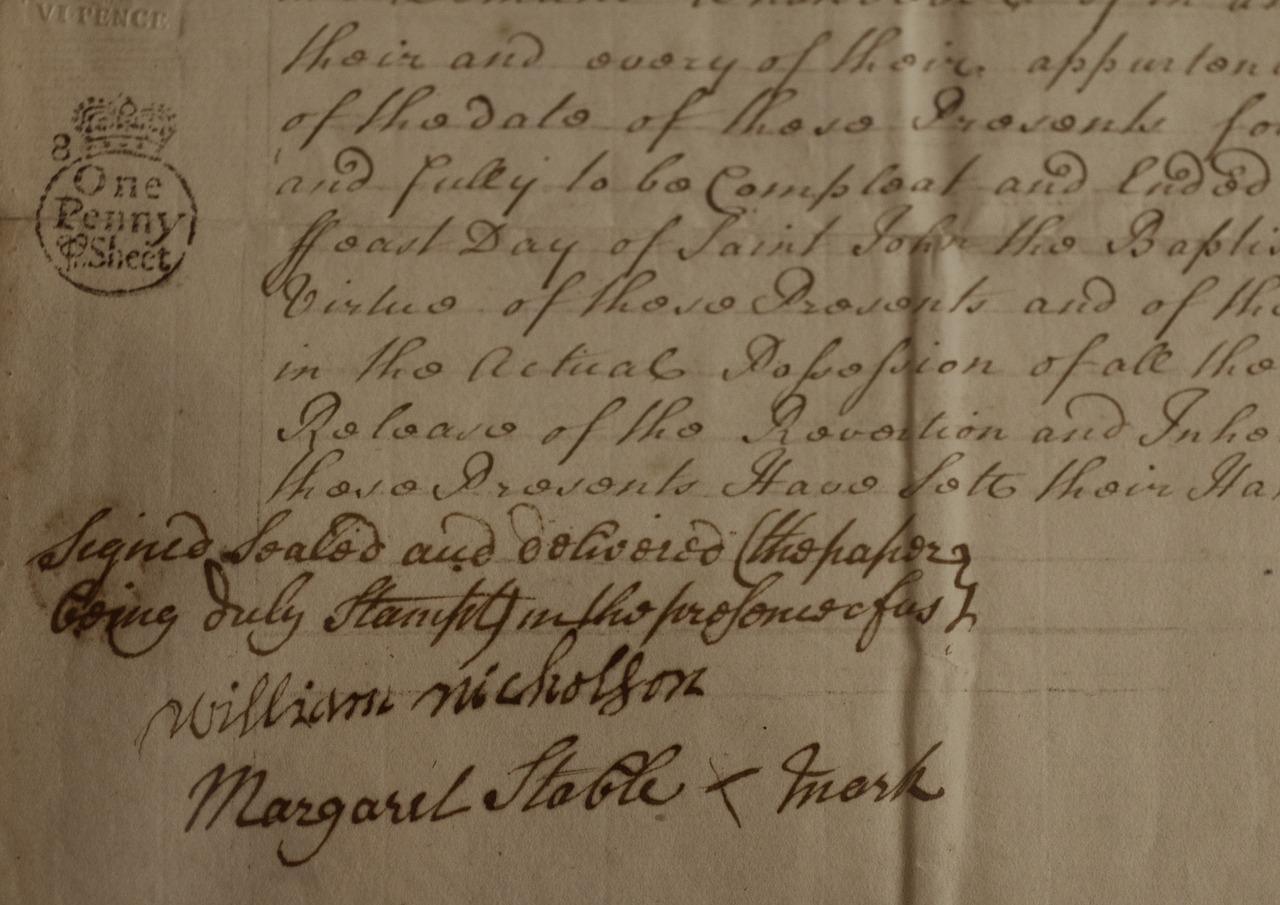 VI PENCE
their and every of their appurten
of the date of these Presents fo
and fully to be Compleat and Ended
ffeast Day of Saint John the Baptis
Virtue of these Presents and of the
in the Actual Possession of all the
Release of the Revertion and Inhe
these Presents Have Sett their Han
8
One
Penny
P. Sheet
Signed Sealed and delivered (the paper
being duly Stampt) in the presence of us
William Nicholson
Margaret Stable X Mark